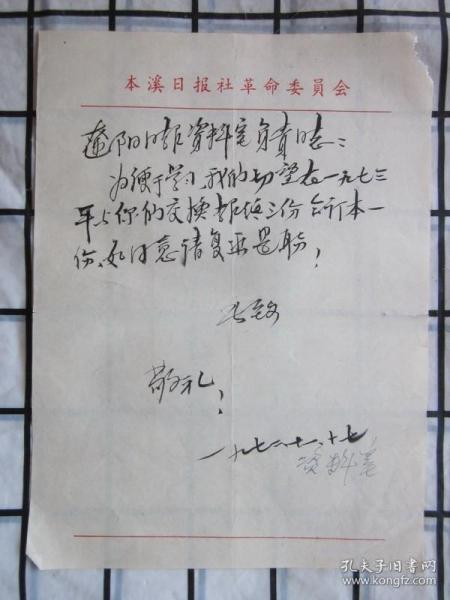 本溪日报社革命委員会
辽阳日报资料室负责同志：
为便于学习，我们切望在一九七三
年与你们交换报纸二份合订本一
份，如同意请复函是盼！
此致
敬礼！
一九七二.十一.十七
资料室
孔夫子旧书网
www.kongfz.com